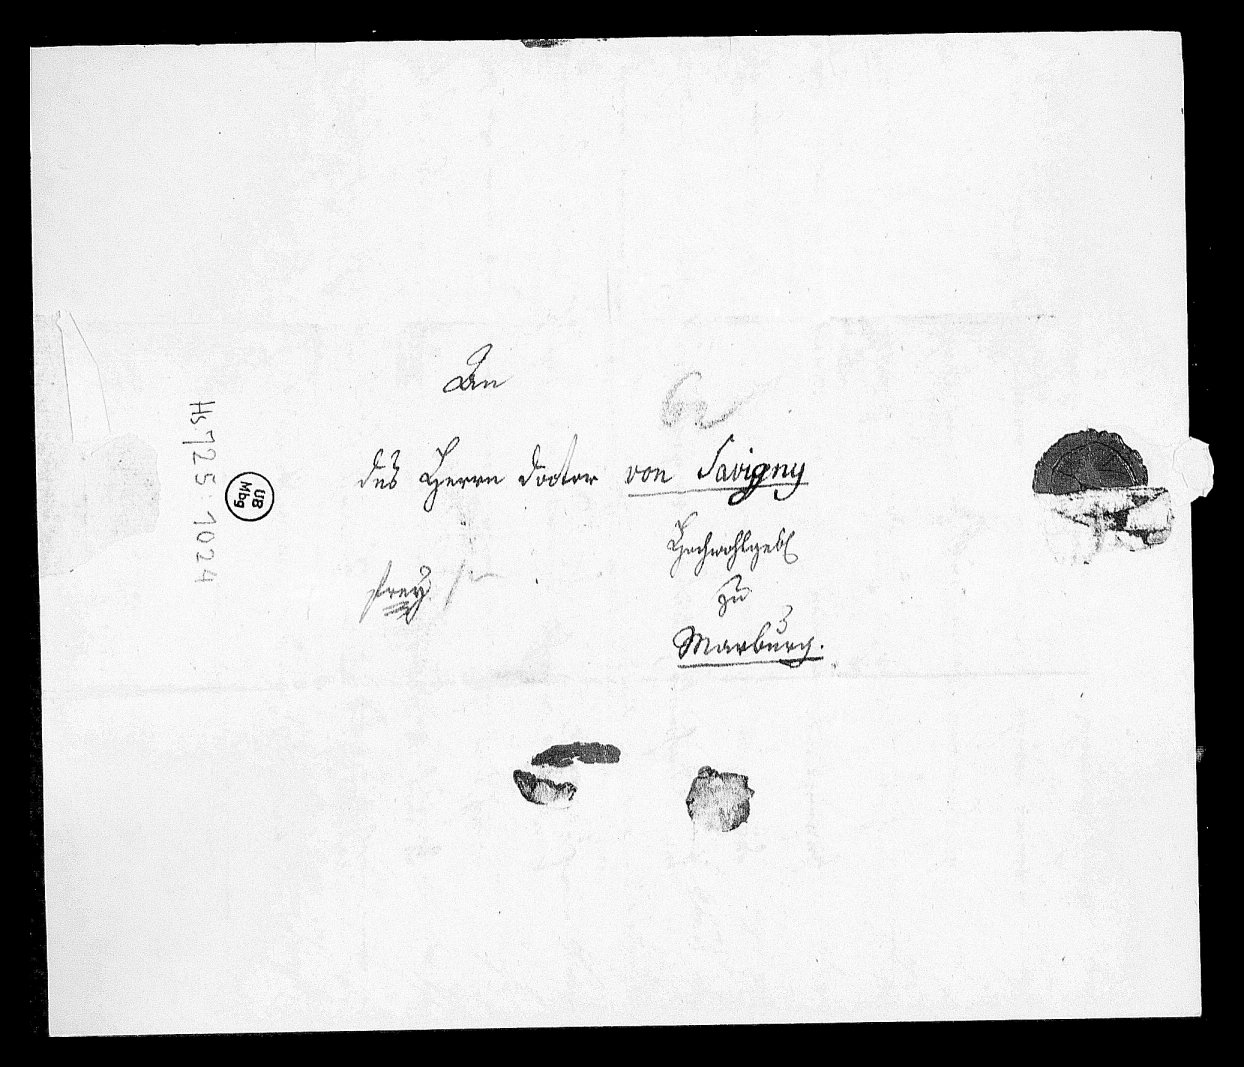 An
des Herrn Doctor von Savigny
Hochwohlgeb
zu
Marburg.
frey
Hs 725:1024
UB
Mbg